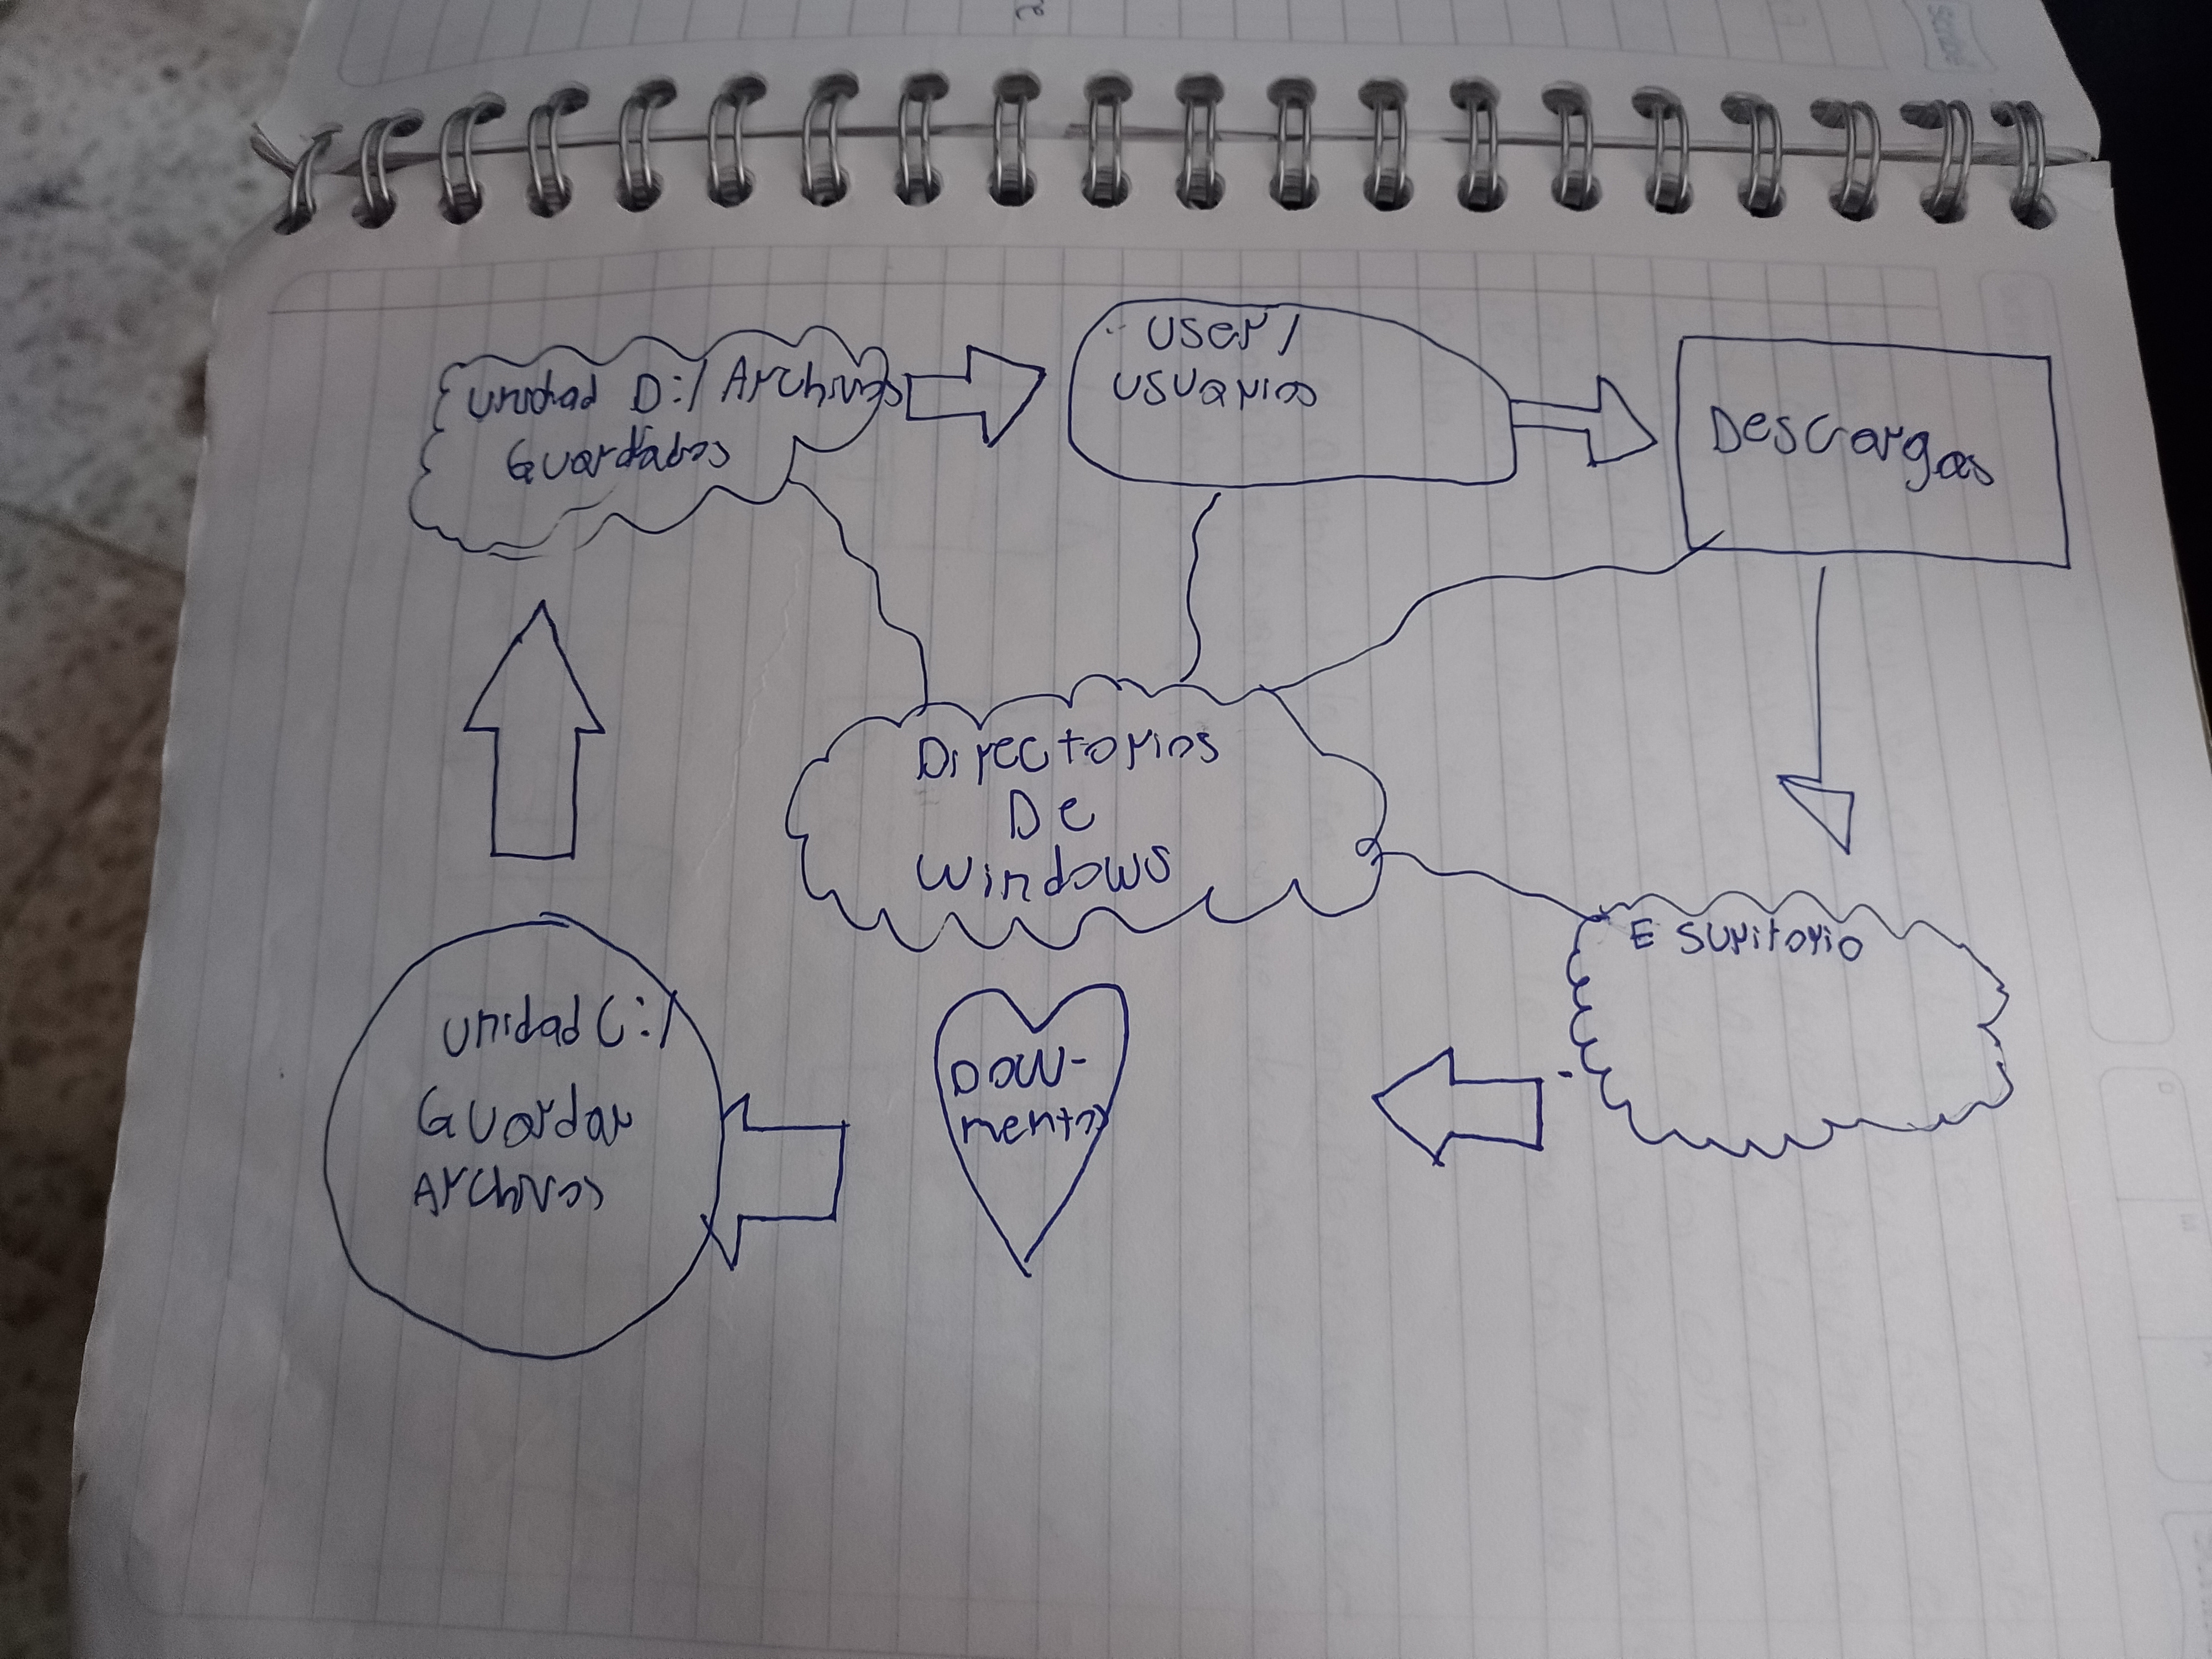 Unidad D:/ Archivos
Guardados
User/
Usuarios
Descargas
Directorios
De
Windows
Escritorio
Docu-
mentos
Unidad C:/
Guardar
Archivos